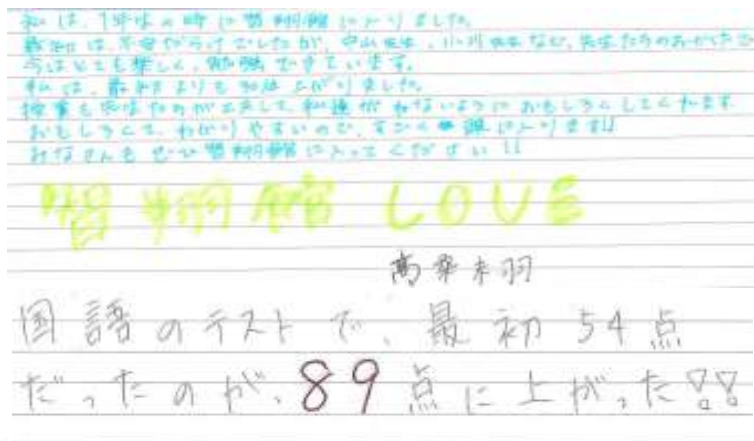 私は、1年生の時に智翔館に入りました。
最初は、不安だらけでしたが、中山先生、小川先生など、先生たちのおかげで
今はとても楽しく、勉強できています。
私は、最初よりも 上がりました。
授業も先生たちが工夫して、私達が ねないように おもしろくしてくれます
おもしろくて、わかりやすいので、すごく 頭に入ります!!
みなさんも ぜひ智翔館に入ってください!!
智翔館 LOVE
未羽
国語のテストで、最初54点
だったのが、89点に上がった!!